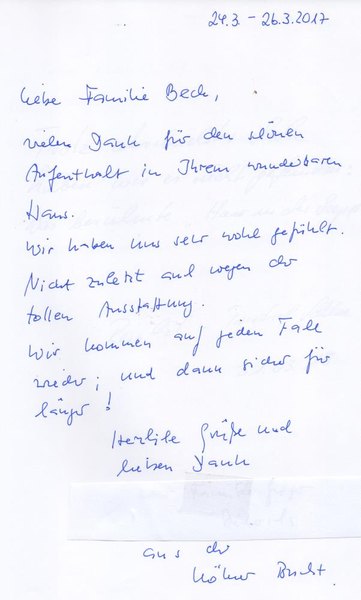 24.3. - 26.3.2017
liebe Familie Beck,
vielen Dank für den schönen
Aufenthalt in Ihrem wunderbaren
Haus.
Wir haben uns sehr wohl gefühlt.
Nicht zuletzt auch wegen der
tollen Ausstattung.
Wir kommen auf jeden Fall
wieder; und dann sicher für
länger!
Herzliche Grüße und
lieben Dank
aus der